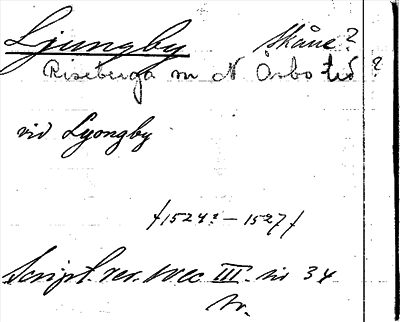 Ljungby Skåne?
Riseberga sn N Åsbo hd ?
vid Lyongby
/1524?-1527/
Script. rer. svec III. sid 34